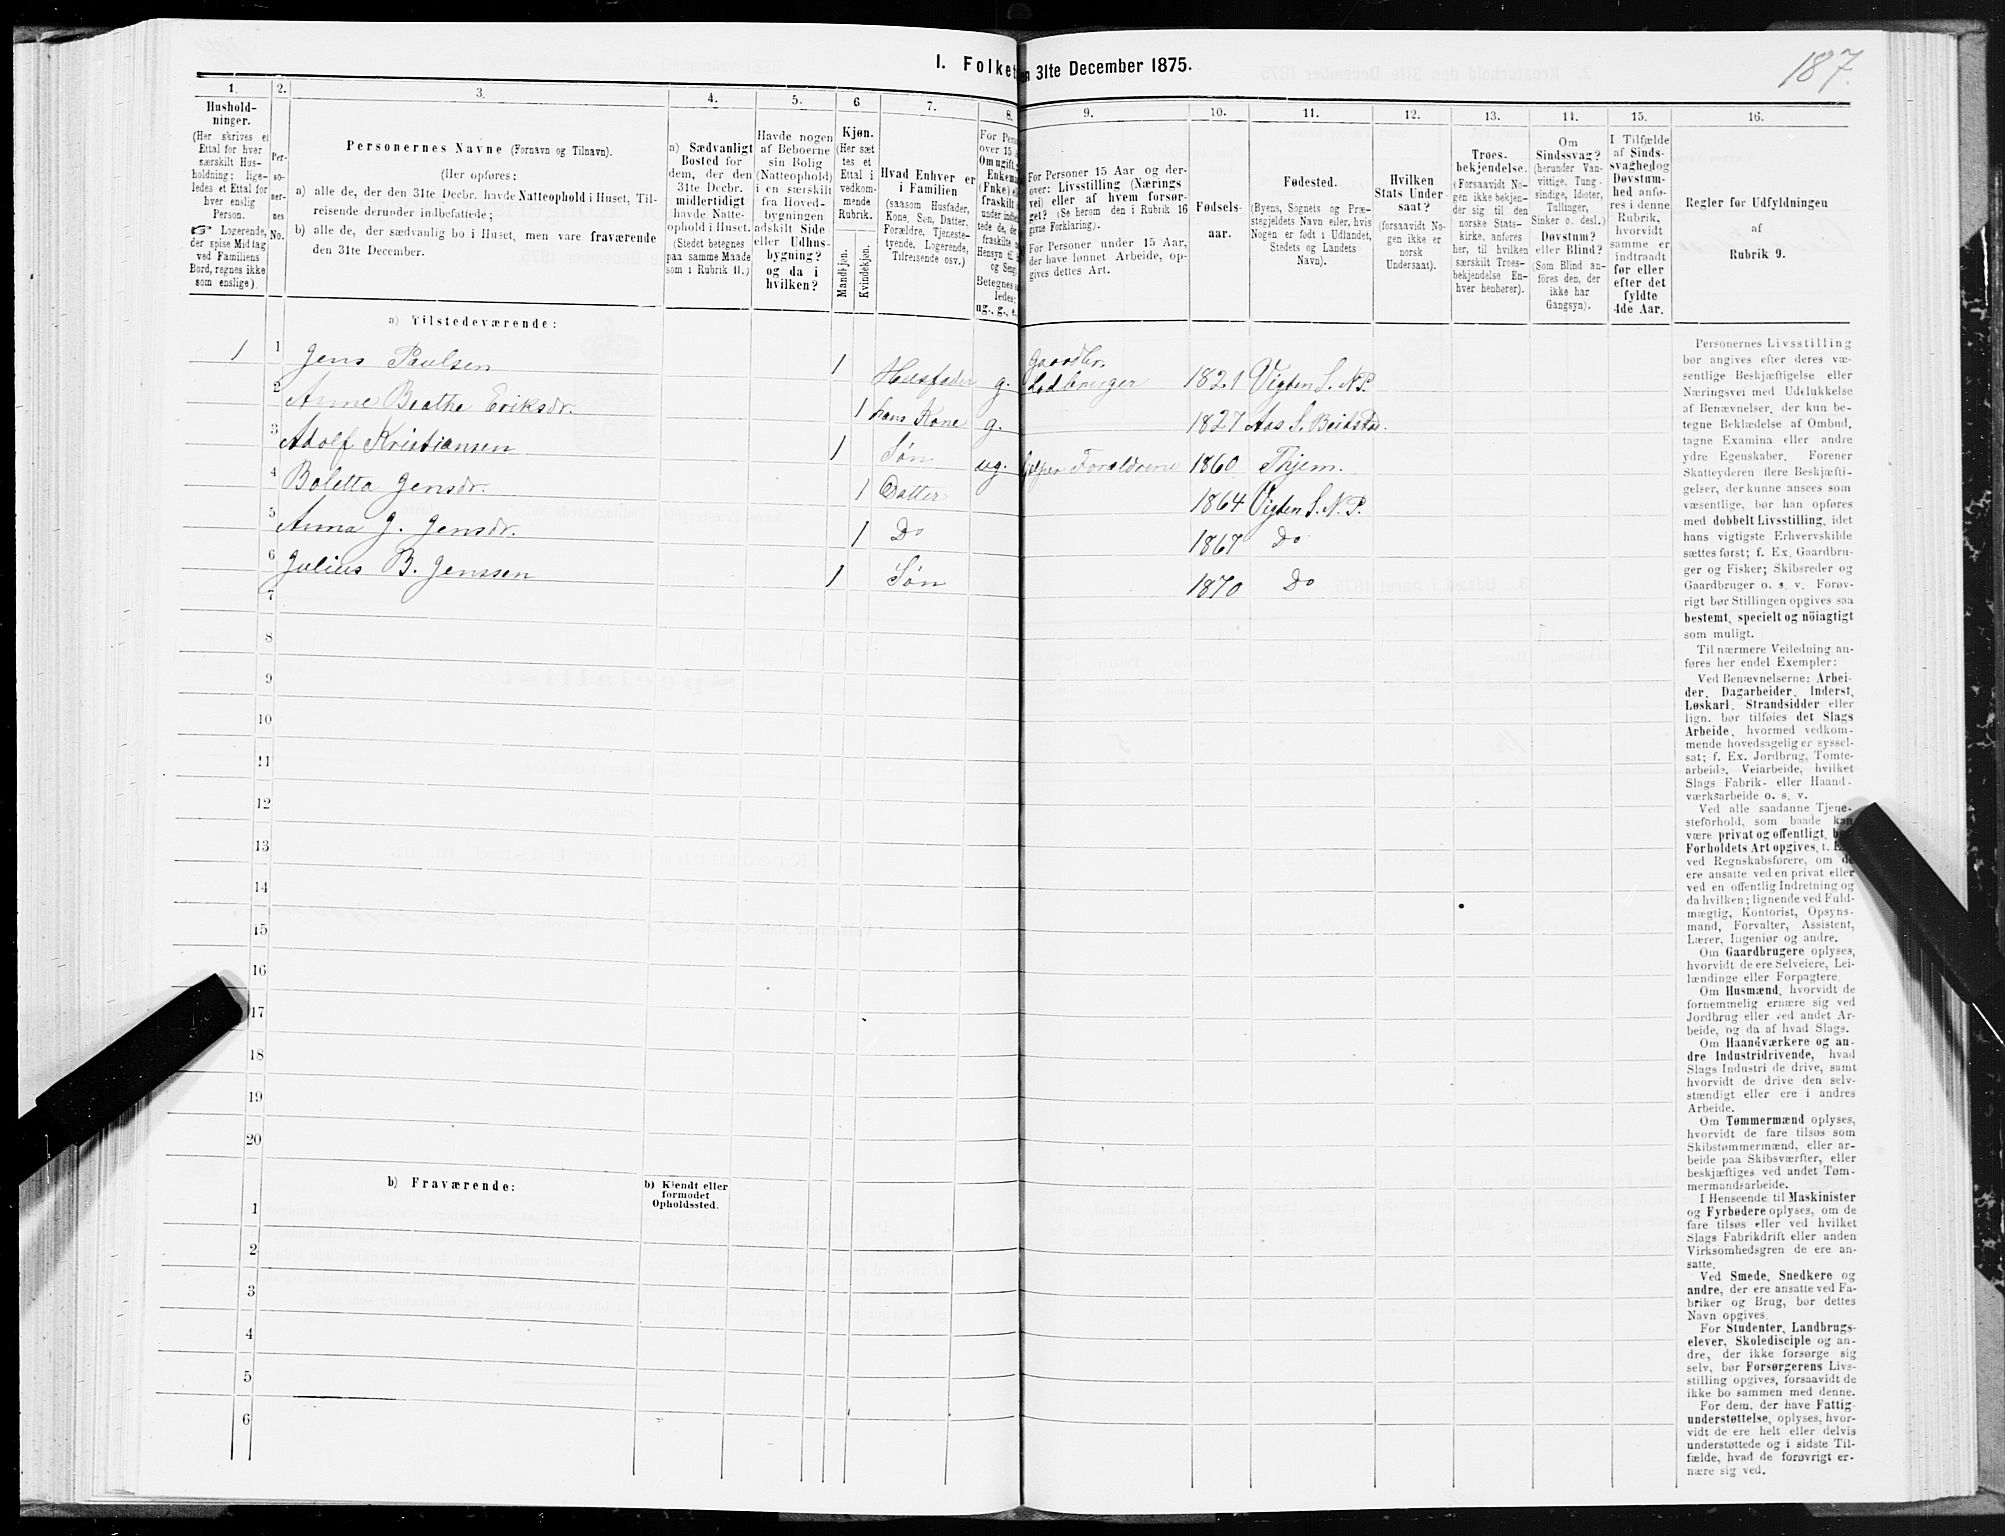 187.
I. Folket
en 31te December 1875.
1. 2. 3. 4. 5. 6 7. 8. 9. 10. 11. 12. 13. 14. 15. 16.
Hushold-
ninger.
(Her skrives et
Ettal for hver
særskilt Hus-
holdning; lige-
ledes et Ettal for
hver enslig
Person.
☞ Logerende,
der spise Middag
ved Familiens
Bord, regnes ikke
som enslige).
Per-
so-
ner-
nes
No.
Personernes Navne (Fornavn og Tilnavn).
(Her opføres:
a) alle de, der den 31te Decbr. havde Natteophold i Huset, Til-
reisende derunder indbefattede;
b) alle de, der sædvanlig bo i Huset, men vare fraværende
den 31te December.
a) Sædvanligt
Bosted for
dem, der den
31te Decbr.
midlertidigt
havde Natte-
ophold i Huset.
(Stedet betegnes
paa samme Maade
som i Rubrik 11.)
Havde nogen
af Beboerne
sin Bolig
(Natteophold)
i en særskilt
fra Hoved-
bygningen
adskilt Side
eller Udhus-
bygning?
og da i
hvilken?
Kjøn.
(Her sæt
tes et
Ettal i
vedkom-
mende
Rubrik.
Mandkjøn.
Kvindekjøn.
Hvad Enhver er
i Familien
(saasom Husfader,
Kone, Søn, Datter,
Forældre, Tjeneste-
tyende, Logerende,
Tilreisende osv.)
For Pers
over 15 A
Om ugift,
Enkema
(Enke) e
fraskilt
Betegnes
ledes:
ug., g., e.
For Personer 15 Aar og der-
over: Livsstilling (Nærings
vei) eller af hvem forsør-
get? (Se herom den i Rubrik 16
givne Forklaring).
For Personer under 15 Aar,
der have lønnet Arbeide, op-
gives dettes Art.
Fødsels-
aar.
Fødested.
(Byens, Sognets og Præ-
stegjeldets Navn eller, hvis
Nogen er født i Udlandet,
Stedets og Landets
Navn).
Hvilken
Stats Under
saat?
(forsaavidt No-
gen ikke er
norsk
Undersaat).
Troes-
bekjendelse.
(Forsaavidt No-
gen ikke bekjen-
der sig til den
norske Stats-
kirke, anføres
her, til hvilken
særskilt Troes-
bekjendelse En-
hver henhører).
Om
Sindssvag?
(herunder Van-
vittige, Tung-
sindige, Idioter,
Tullinger,
Sinker o. desl.)
Døvstum?
eller Blind?
(Som Blind an-
føres den, der
ikke har
Gangsyn).
I Tilfælde
af Sinds-
svaghed og
Døvstum-
hed anfø-
res i denne
Rubrik,
hvorvidt
samme er
indtraadt
før eller
efter det
fyldte
4de Aar.
Regler for Udfyldningen
af
Rubrik 9.
a) Tilstedeværende:
1 1 Jens Paulsen 1 Husfader g. Gaardbr. Ledbruger 1821 Vigten S. N. P.
2 Anne Beathe Eriksdr. 1 hans Kone g. 1827 Aas S. Beitstad.
3 Adolf Kristiansen 1 Søn ug. hjelper Foreldrene 1860 Thjem.
4 Boletta Jensdr. 1 Datter 1864 Vigten S. N. P.
5 Anna J. Jensdr. 1 Do 1867 Do
6 Julius B. Jenssen 1 Søn 1870 Do
7
8
9
10
11
12
13
14
15
16
17
18
19
20
b) Fraværende:
b) Kjendt eller
formodet
Opholdssted.
1
2
3
4
5
6
Personernes Livsstilling
bør angives efter deres væ-
sentlige Beskjæftigelse eller
Næringsvei med Udelukkelse
af Benævnelser, der kun be-
tegne Beklædelse af Ombud,
tagne Examina eller andre
ydre Egenskaber. Forener
Skatteyderen flere Beskjæfti-
gelser, der kunne ansees som
væsentlige, bør han opføres
med dobbelt Livsstilling, idet
hans vigtigste Erhvervskilde
sættes først; f. Ex. Gaardbru-
ger og Fisker; Skibsreder og
Gaardbruger o. s. v. Forøv-
rigt bør Stillingen opgives saa
bestemt, specielt og nöiagtigt
som muligt.
Til nærmere Veiledning an-
føres her endel Exempler:
Ved Benævnelserne: Arbei-
der, Dagarbeider, Inderst,
Løskarl, Strandsidder eller
lign. bør tilføies det Slags
Arbeide, hvormed vedkom-
mende hovedsagelig er syssel-
sat; f. Ex. Jordbrug, Tomte-
arbeide, Veiarbeide, hvilket
Slags Fabrik- eller Haand-
værksarbeide o. s. v.
Ved alle saadanne Tjene-
steforhold, som baade kan
være privat og offentligt, bør
Forholdets Art opgives, t. E
ved Regnskabsførere, om de
ere ansatte ved en privat eller
ved en offentlig Indretning og
da hvilken; lignende ved Fuld-
mægtig, Kontorist, Opsyns-
mand, Forvalter, Assistent,
Lærer, Ingeniør og andre.
Om Gaardbrugere oplyses,
hvorvidt de ere Selveiere, Lei-
lændinge eller Forpagtere.
Om Husmænd, hvorvidt de
fornemmelig ernære sig ved
Jordbrug eller ved andet Ar-
beide, og da af hvad Slags.
Om Haandværkere og an-
dre Industridrivende, hvad
Slags Industri de drive, samt
hvorvidt de drive den selv-
stændigt eller ere i andres
Arbeide.
Om Tømmermænd oplyses,
hvorvidt de fare tilsøs som
Skibstømmermænd, eller ar-
beide paa Skibsværfter, eller
beskjæftiges ved andet Tøm-
mermandsarbeide.
I Henseende til Maskinister
og Fyrbødere oplyses, om de
fare tilsøs eller ved hvilket
Slags Fabrikdrift eller anden
Virksomhedsgren de ere an-
satte.
Ved Smede, Snedkere og
andre, der ere ansatte ved Fa-
briker og Brug, bør dettes
Navn opgives
For Studenter, Landbrugs-
elever, Skoledisciple og an-
dre, der ikke forsørge sig
selv, bør Forsørgerens Livs-
stilling opgives, forsaavidt de
ikke bo sammen med denne.
For dem, der have Fattig-
understøttelse, oplyses, hvor-
vidt de ere helt eller delvis
understøttede og i sidste Til-
fælde, hvad de forøvrigt er-
nære sig ved.